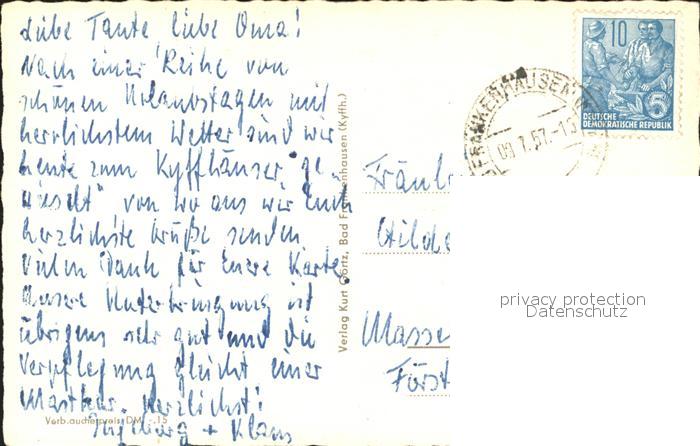 Liebe Tante liebe Oma!
Nach einer Reihe von
schönen Urlaubstagen mit
herrlichstem Wetter sind wir
heute zum Kyffhäuser "ge-
" von wo aus wir Euch
herzlichste Grüße senden.
Vielen Dank für Eure Karte.
Unsere Unterbringung ist
übrigens sehr gut und die
Verpflegung gleicht einer
Mastkur. Herzlichst!
Ingeborg + Klaus
Verb.augerpreis DM -.15
Verlag Kurt Görtz, Bad Frankenhausen (Kyffh.)
FRANKENHAUSEN
09.7.57.-15
10
5
DEUTSCHE
DEMOKRATISCHE REPUBLIK
Fräul
Hilde
Masse
Först
privacy protection
Datenschutz